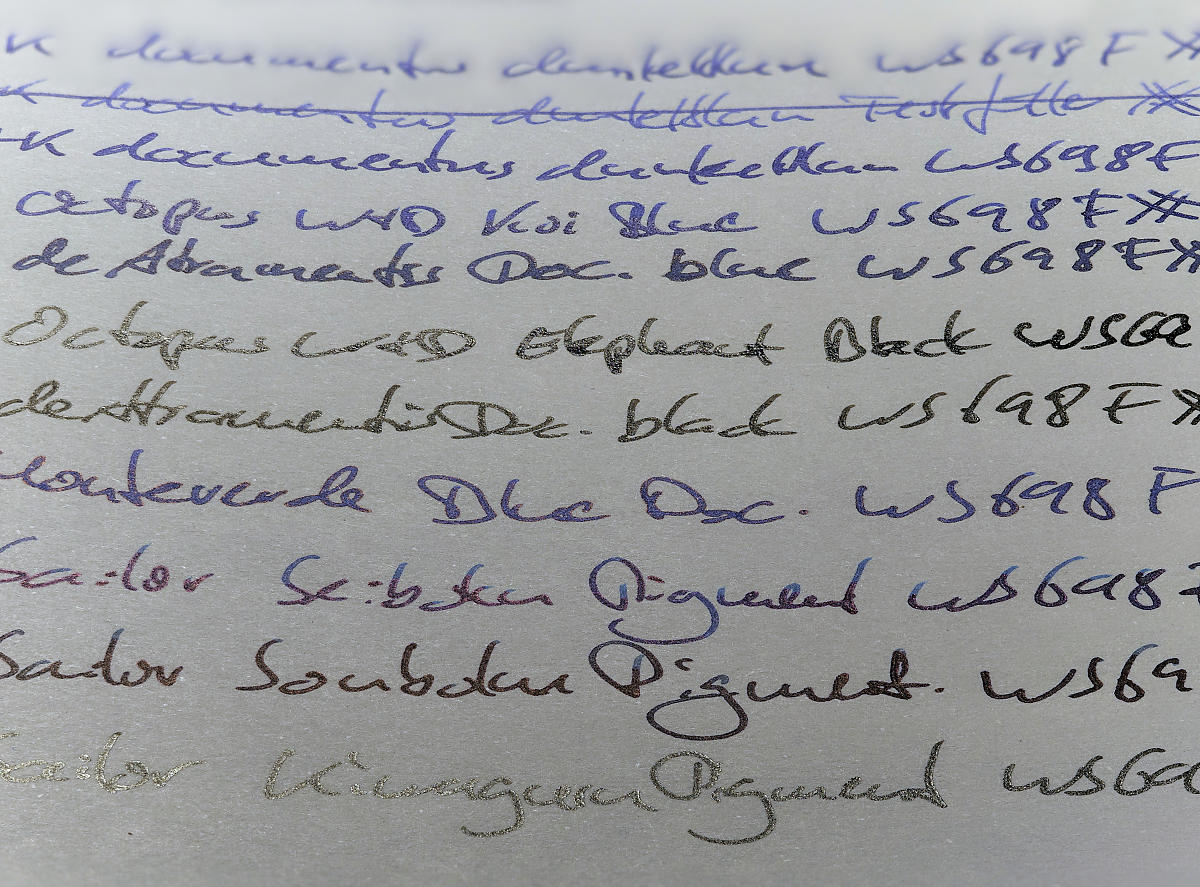 K documentus dunkelblau WS698F XX
K documentus dunkelblau Testfüller XX
K documentus dunkelblau WS698F
Octopus W+D Koi Blue WS698F XX
de Atramentis Doc. blue WS698F X
Octopus W+D Elephant Black WS69
de Atramentis Doc. black WS698F X
Monteverde Blue Doc. WS698F
Sailor Seiboku Pigment WS698F
Sailor Souboku Pigment. WS69
Sailor Kiwaguro Pigment WS69